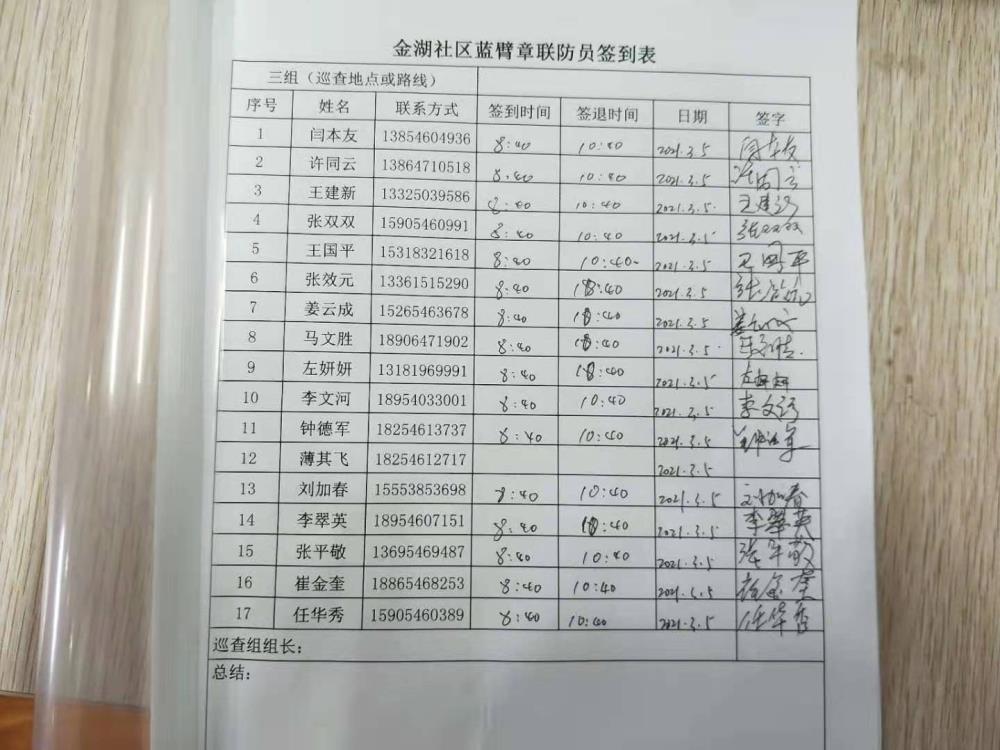 金湖社区蓝臂章联防员签到表
三组（巡查地点或路线）
序号 姓名 联系方式 签到时间 签退时间 日期 签字
1 闫本友 13854604936 8:40 10:40 2021.3.5 闫本友
2 许同云 13864710518 8:40 10:40 2021.3.5 许同云
3 王建新 13325039586 8:40 10:40 2021.3.5 王建新
4 张双双 15905460991 8:40 10:40 2021.3.5 张双双
5 王国平 15318321618 8:40 10:40 2021.3.5 王国平
6 张效元 13361515290 8:40 10:40 2021.3.5
7 姜云成 15265463678 8:40 10:40 2021.3.5
8 马文胜 18906471902 8:40 10:40 2021.3.5
9 左妍妍 13181969991 8:40 10:40 2021.3.5 左妍妍
10 李文河 18954033001 8:40 10:40 2021.3.5 李文河
11 钟德军 18254613737 8:40 10:40 2021.3.5
12 薄其飞 18254612717 2021.3.5
13 刘加春 15553853698 8:40 10:40 2021.3.5 刘加春
14 李翠英 18954607151 8:40 10:40 2021.3.5 李翠英
15 张平敬 13695469487 8:40 10:40 2021.3.5 张平敬
16 崔金奎 18865468253 8:40 10:40 2021.3.5 崔金奎
17 任华秀 15905460389 8:40 10:40 2021.3.5 任华秀
巡查组组长：
总结：